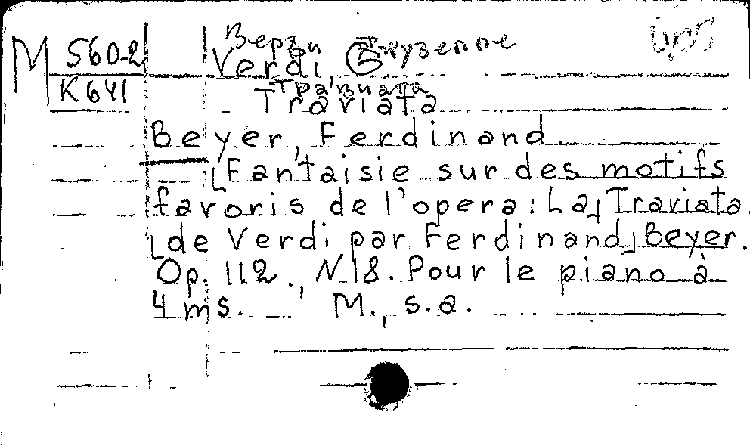 M 560-2
K 641
Верди, Джузеппе
Verdi,
Травиата
Traviata
Beyer, Ferdinand
[Fantaisie sur des motifs
favoris de l'opera: La] Traviata
[de Verdi par Ferdinand] Beyer.
Op. 112., N.18. Pour le piano à
4 ms. M., s.a.